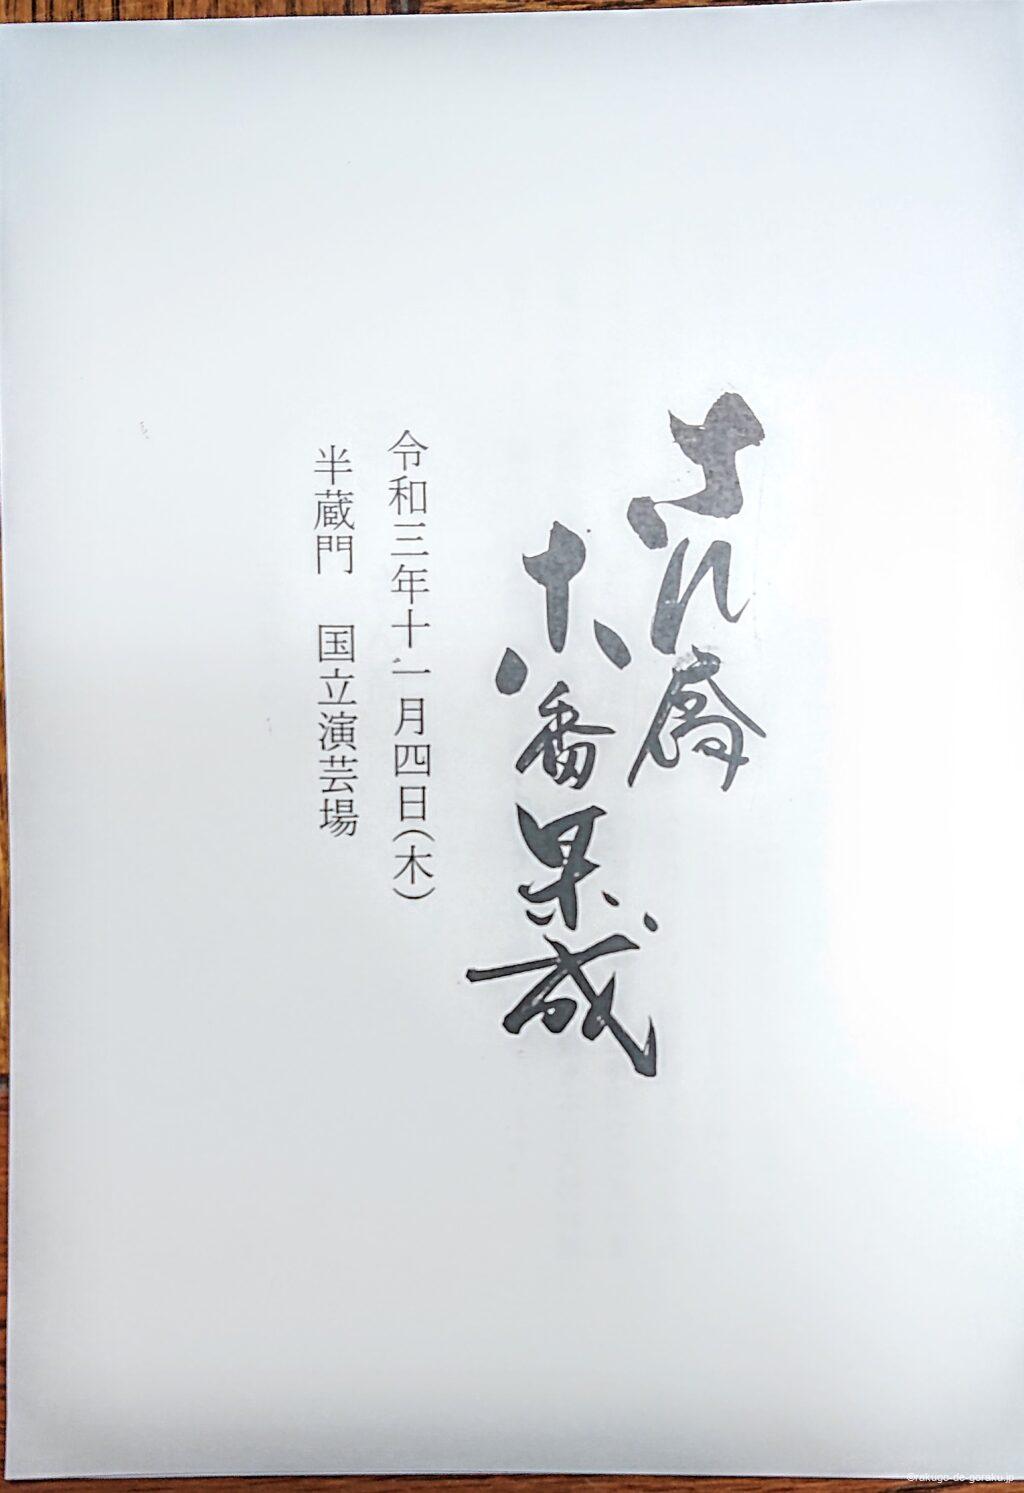 さん喬
十八番集成
令和三年十一月四日(木)
半蔵門　国立演芸場
©rakugo-de-goraku.jp